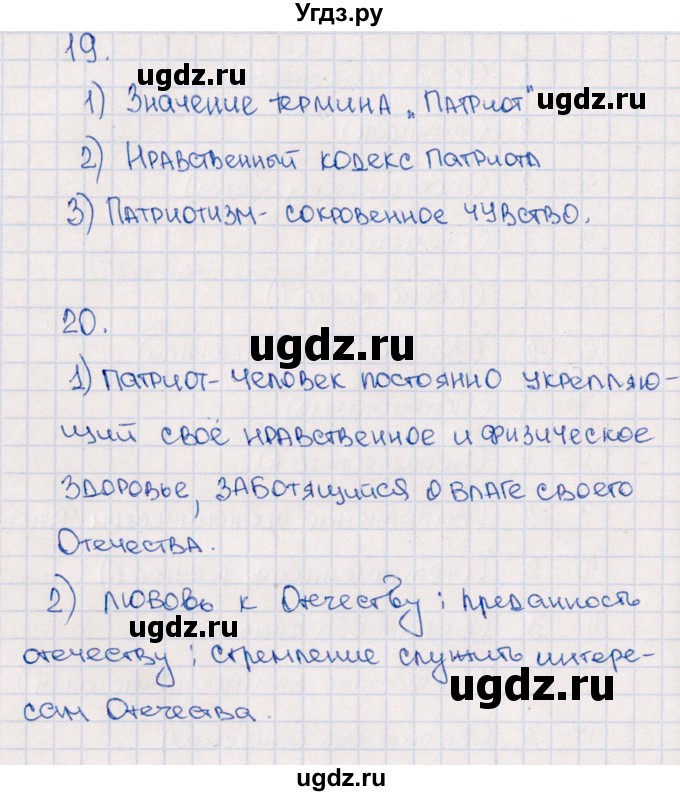 Угдз.ру
19.
ugdz.ru
1) Значение термина „Патриот"
ugdz.ru
2) Нравственный кодекс патриота
3) Патриотизм - сокровенное чувство.
20.
ugdz.ru
1) Патриот - человек постоянно укрепляю-
щий своё нравственное и физическое
здоровье, заботящийся о благе своего
Отечества.
2) любовь к Отечеству; преданность
ugdz.ru
отечеству; стремление служить интере-
ugdz.ru
сам Отечества.
ugdz.ru